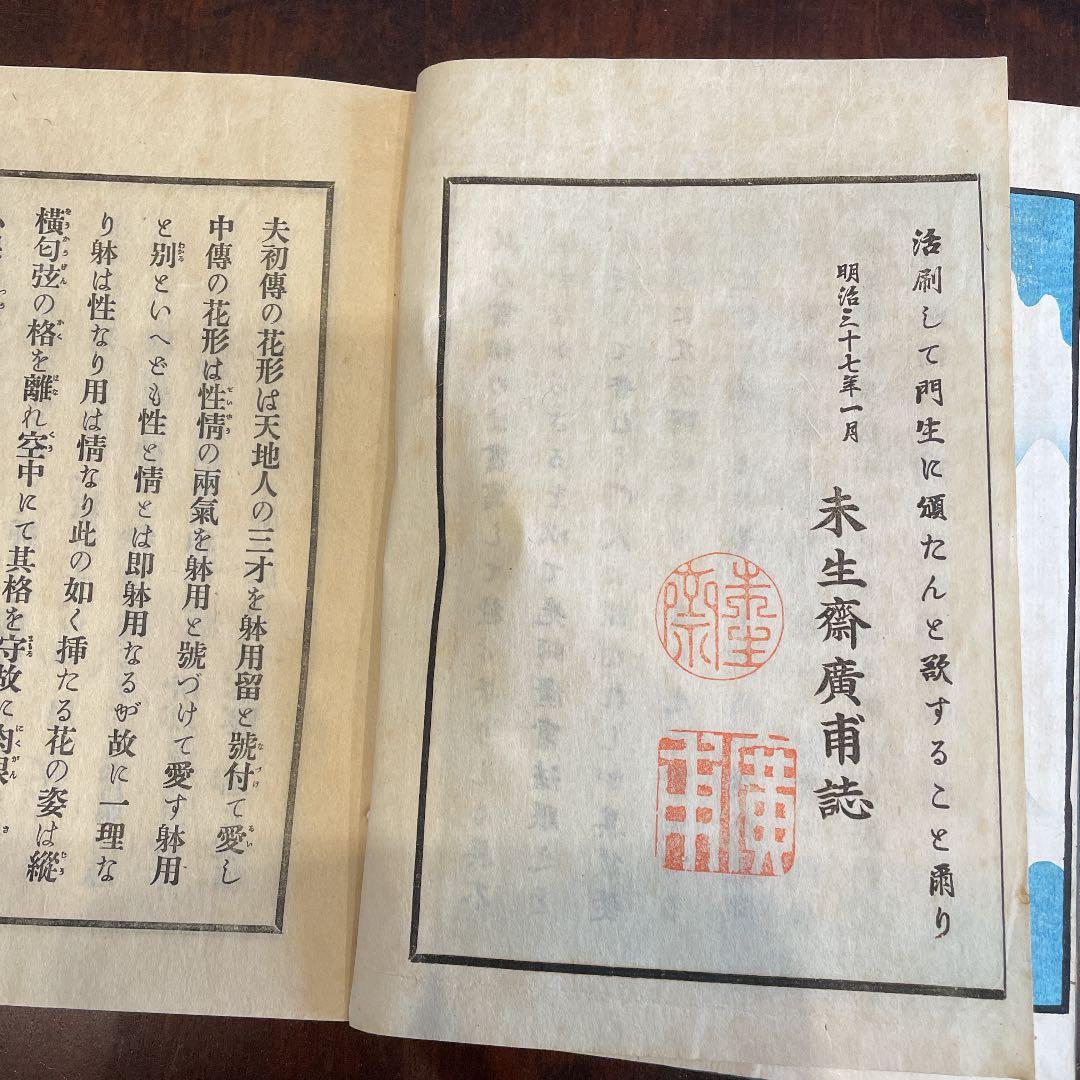 活刷して門生に頒たんと歌すること爾り
明治三十七年一月
未生齋廣甫誌
未生齋
廣甫
夫初傳の花形は天地人の三才を躰用留と號付て愛し
中傳の花形は性情の兩氣を躰用と號づけて愛す躰用
と別といへども性と情とは即躰用なるが故に一理な
り躰は性なり用は情なり此の如く挿たる花の姿は縱
橫匂弦の格を離れ空中にて其格を守故に肉眼